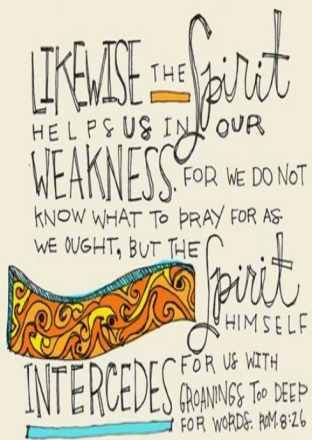 LIKEWISE THE Spirit
HELPS US IN OUR
WEAKNESS. FOR WE DO NOT
KNOW WHAT TO PRAY FOR AS
WE OUGHT, BUT THE Spirit
HIMSELF
INTERCEDES FOR US WITH
GROANINGS TOO DEEP
FOR WORDS. ROM. 8:26